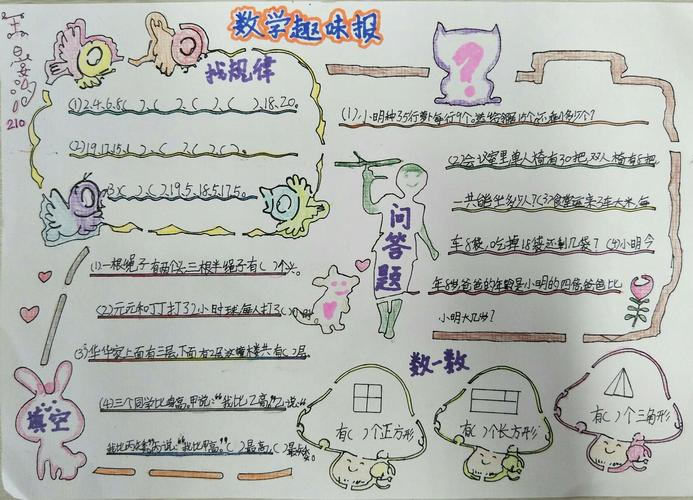 数学趣味报
210
找规律
(1)2.4.6.8( ).( ).( ).( ).18.20。
(2)19.17.15.( ).( ).( ).( )。
(3)( ).( ).19.5.18.5.17.5。
(1)一根绳子有两个头,三根半绳子有( )个头。
(2)元元和丁丁打了2小时球,每人打了( )小时
(3)华华家上面有三层,下面有2层,这幢楼共有( )层。
填空
(4)三个同学比身高。甲说:“我比乙高。”乙说:“
我比丙矮”丙说:“我比甲高。”( )最高,( )最矮。
?
问答题
(1)小明种35行萝卜每行9个。
(2)会议室里单人椅有30把,双人椅有8把,
一共能坐多少人?(3)食堂运来3车大米,每
车8袋,吃掉18袋还剩几袋?(4)小明今
年8岁,爸爸的年龄是小明的四倍,爸爸比
小明大几岁?
数一数
有( )个正方形
有( )个长方形
有( )个三角形